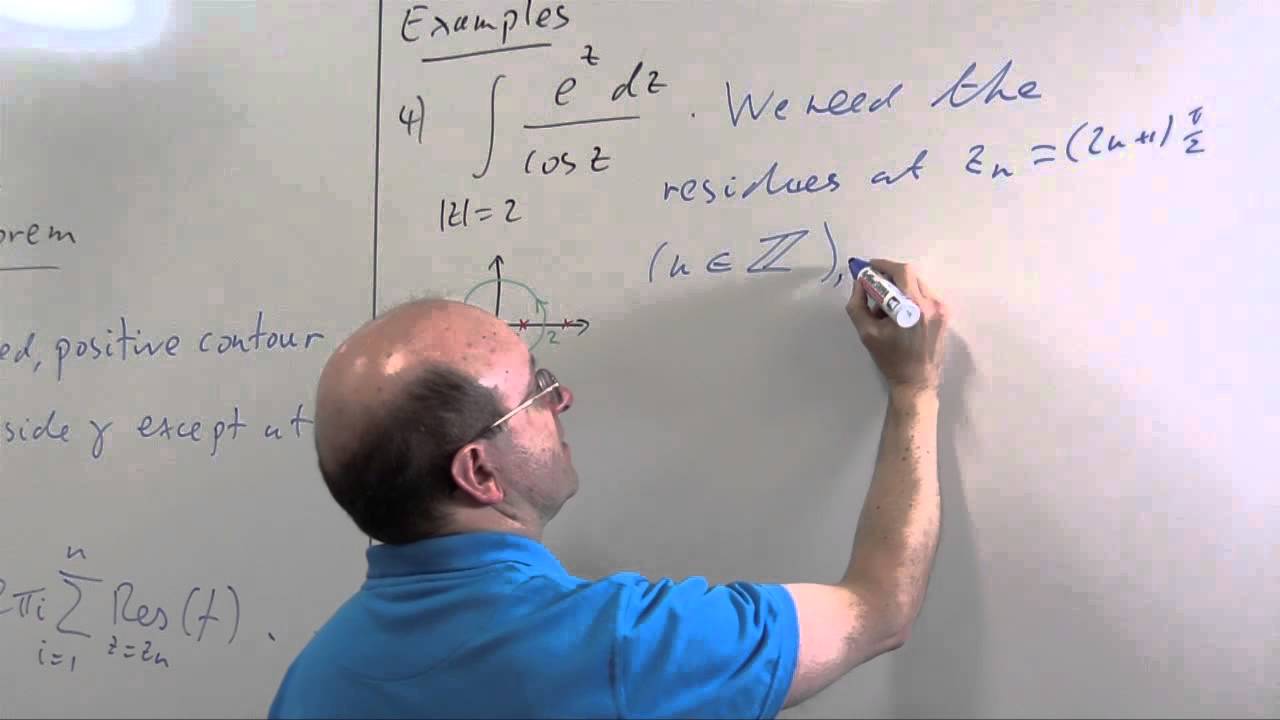 orem
ed, positive contour
side γ except at
2πi ∑ Res(f).
n
i=1
z=zₙ
Examples
4) ∫ eᶻ dz / cos z . We need the
|z|=2
residues at zₙ = (2n+1) π/2
(n ∈ ℤ),
2